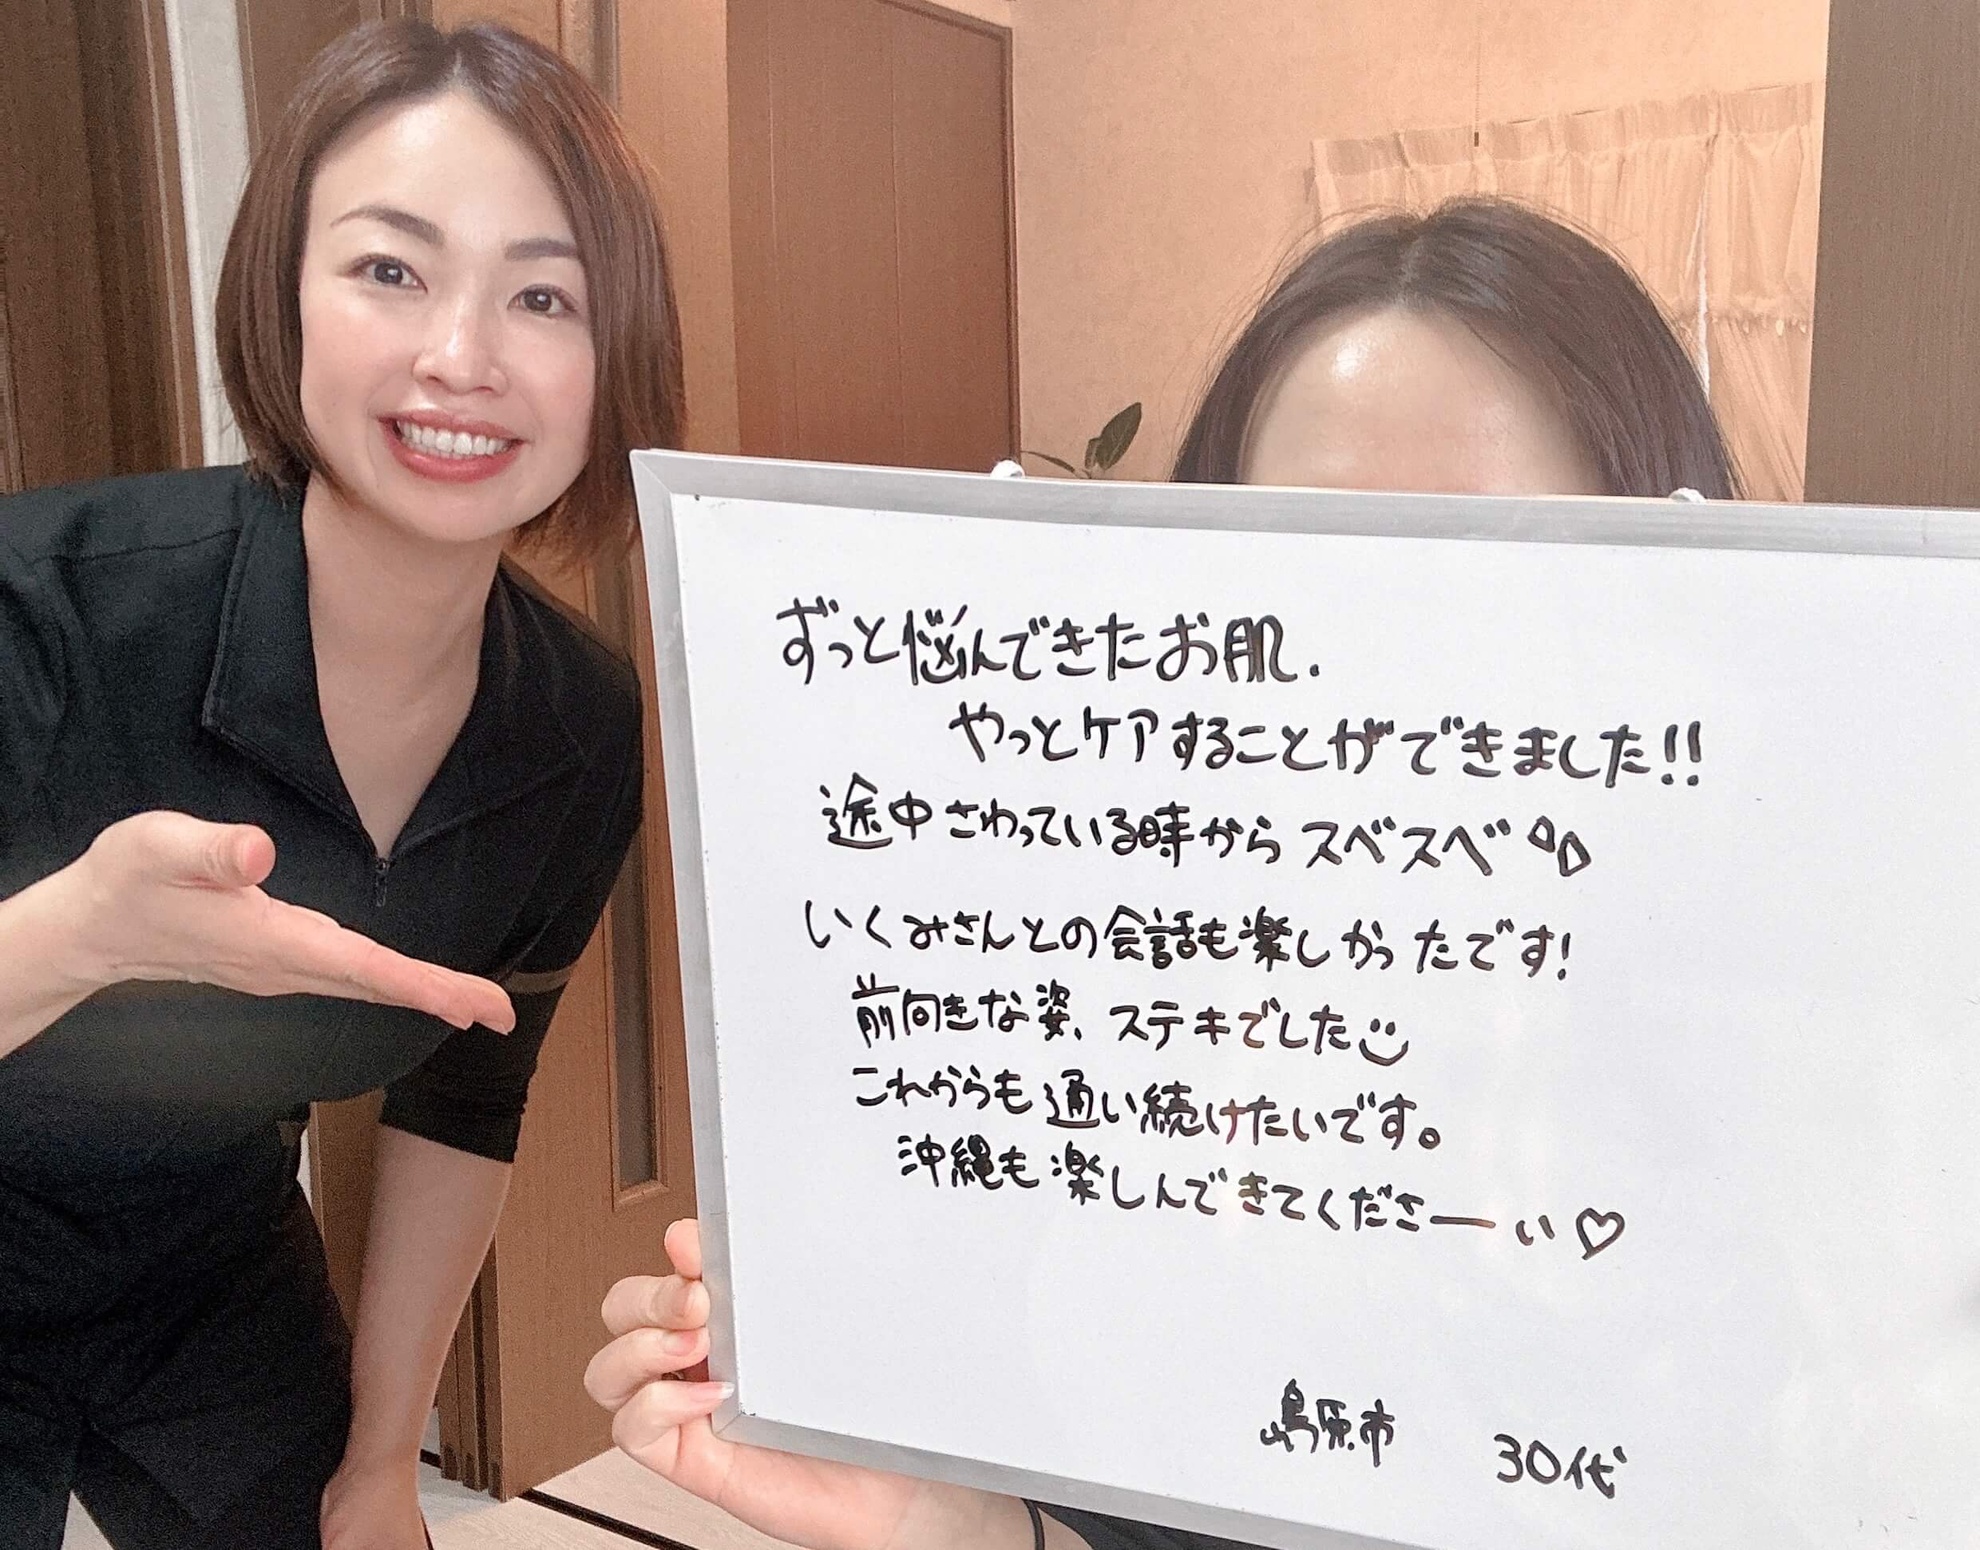 ずっと悩んできたお肌.
やっとケアすることができました!!
途中さわっている時からスベスベ
いくみさんとの会話も楽しかったです!
前向きな姿、ステキでした
これからも通い続けたいです。
沖縄も楽しんできてくださーい♡
島原市 30代